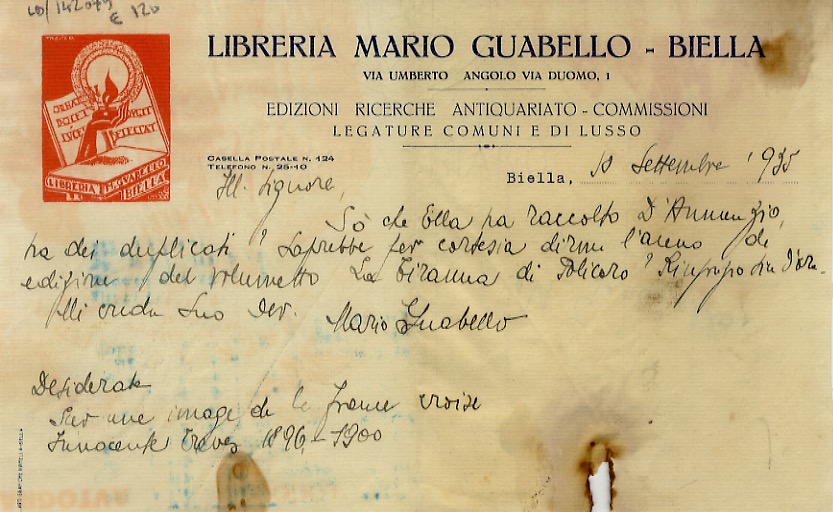 LD/142079
€ 120
LIBRERIA MARIO GUABELLO - BIELLA
VIA UMBERTO ANGOLO VIA DUOMO, 1
EDIZIONI RICERCHE ANTIQUARIATO - COMMISSIONI
LEGATURE COMUNI E DI LUSSO
CASELLA POSTALE N. 124
TELEFONO N. 25-10
LIBRERIA M. GUABELLO
BIELLA
Biella, 10 Settembre 1935
Ill. Signore,
So che Ella ha raccolto D'Annunzio,
ha dei duplicati? Saprebbe per cortesia dirmi l'anno di
edizione del volumetto La Tiranna di Policoro? Ringrazio sin d'ora.
Mi creda Suo Dev. Mario Guabello
Desiderate
Sur une image de la France croise
Innocente Treves 1896,-1900